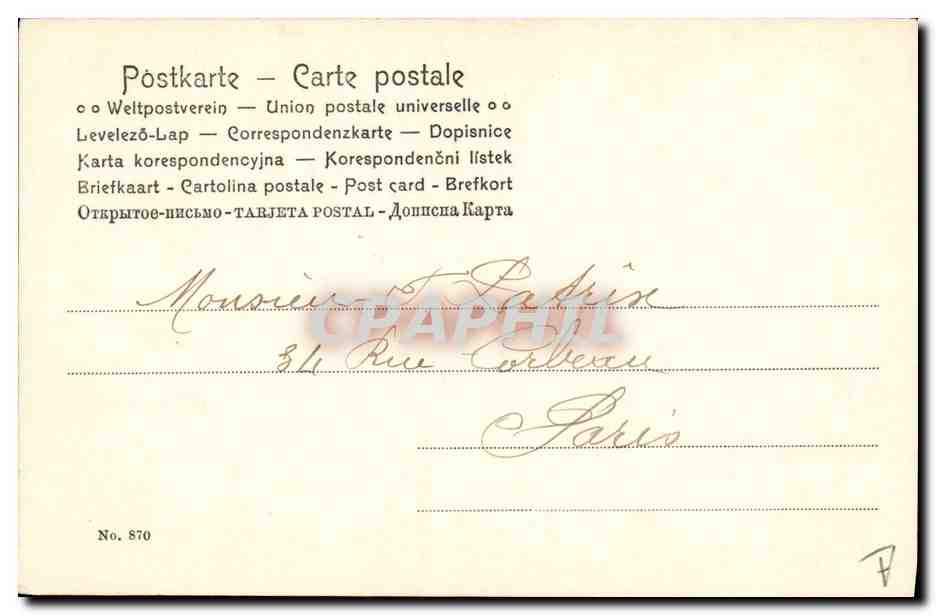 Postkarte — Carte postale
Weltpostverein — Union postale universelle
Levelező-Lap — Correspondenzkarte — Dopisnice
Karta korespondencyjna — Korespondenční lístek
Briefkaart - Cartolina postale - Post card - Brefkort
Открытое-письмо - TARJETA POSTAL - Дописна Карта
Monsieur F Patrix
CPAPHIL
34 Rue Corbeau
Paris
No. 870